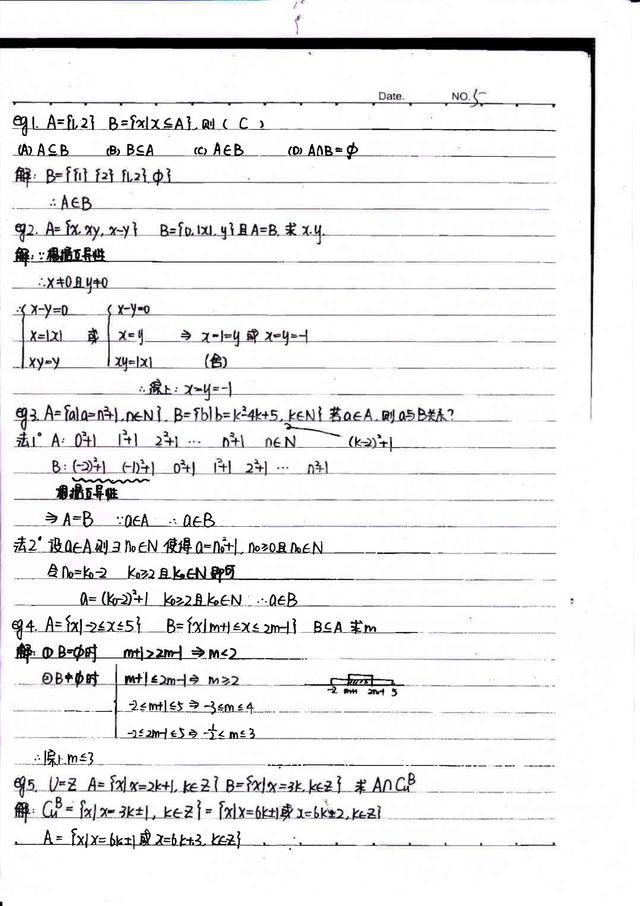 Date. NO. 5
eg1. A={1,2} B={x|x⊆A}, 则 ( C )
(A) A⊆B (B) B⊆A (C) A∈B (D) A∩B=ϕ
解: B={{1} {2} {1,2} ϕ}
∴A∈B
eg2. A={x, xy, x-y} B={0, |x|, y} 且A=B. 求x.y.
解: ∵根据互异性
∴x≠0且y≠0
∴{ x-y=0 { x-y=0
x=|x| 或 x=y ⇒ x=1=y 或 x=y=-1
xy=y xy=|x| (舍)
∴综上: x=y=-1
eg3. A={a|a=n²+1, n∈N}, B={b|b=k²-4k+5, k∈N} 若a∈A, 则a与B关系?
法1° A: 0²+1 1²+1 2²+1 ⋯ n²+1 n∈N (k-2)²+1
B: (-2)²+1 (-1)²+1 0²+1 1²+1 2²+1 ⋯ n²+1
根据互异性
⇒ A=B ∵a∈A ∴a∈B
法2° 设a∈A则∃n₀∈N 使得a=n₀²+1, n₀≥0且n₀∈N
令n₀=k₀-2 k₀≥2且k₀∈N即可
a=(k₀-2)²+1 k₀≥2且k₀∈N ∴a∈B
eg4. A={x|-2≤x≤5} B={x|m+1≤x≤2m-1} B⊆A 求m
解: ① B=ϕ时 m+1>2m-1 ⇒ m<2
② B≠ϕ时 m+1≤2m-1 ⇒ m≥2
-2 m+1 2m-1 5
-2≤m+1≤5 ⇒ -3≤m≤4
-2≤2m-1≤5 ⇒ -½≤m≤3
∴综上m≤3
eg5. U=Z A={x|x=2k+1, k∈Z} B={x|x=3k, k∈Z} 求A∩CuB
解: CuB={x|x=3k±1, k∈Z}={x|x=6k±1或x=6k±2, k∈Z}
A={x|x=6k±1或x=6k+3, k∈Z}